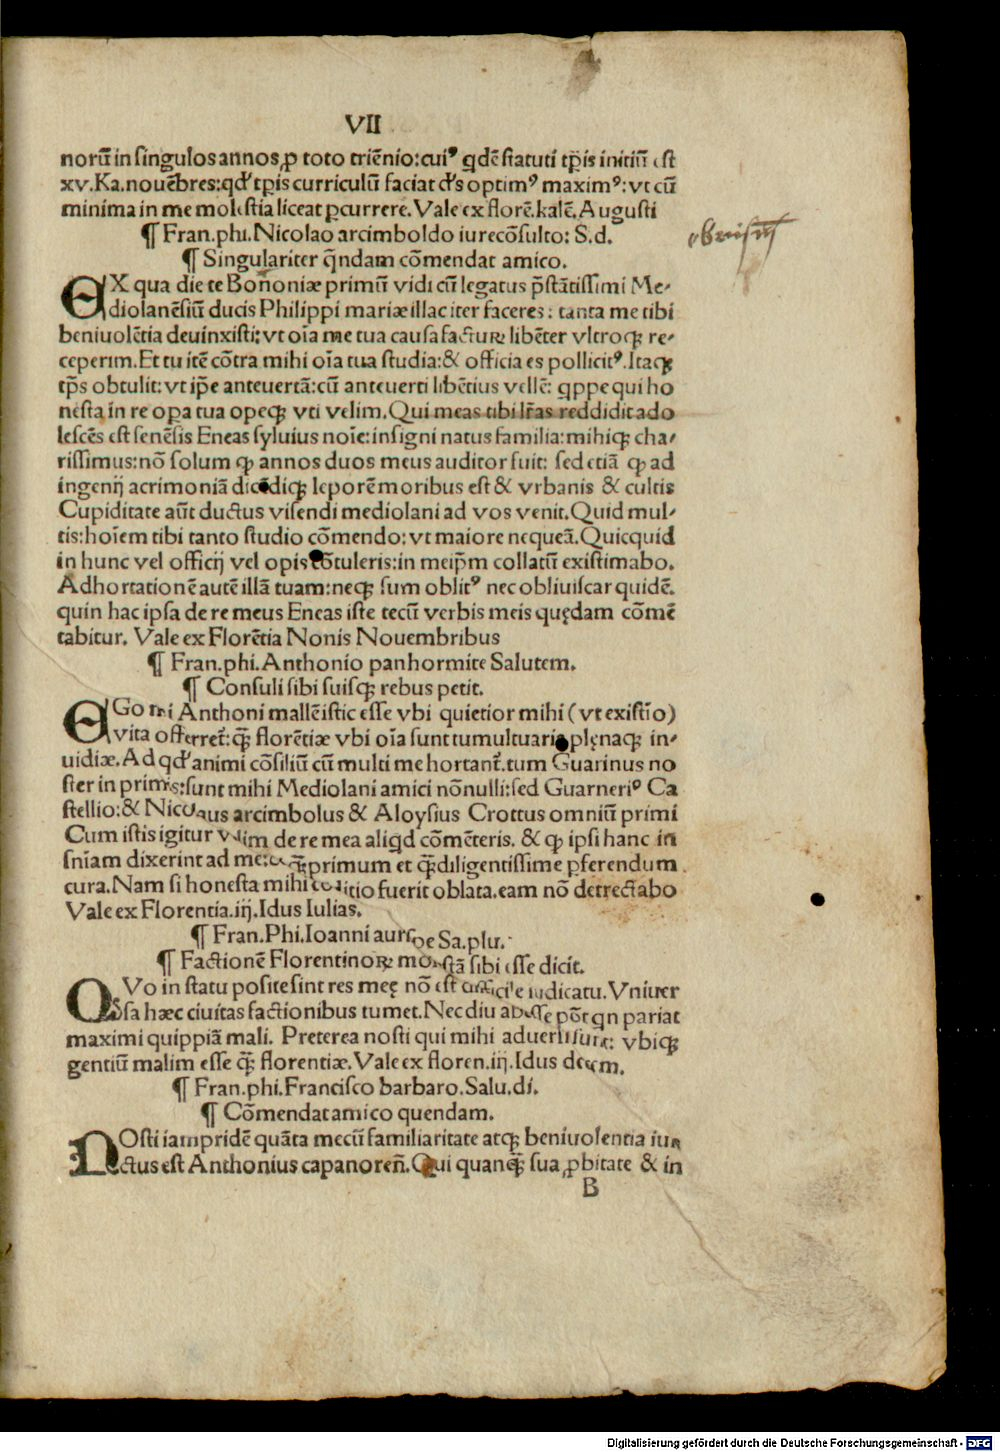 VII
norū in singulos annos ꝓ toto triēnio: cui⁹ qdē statuti tp̄is initiū est
xv. Ka. nouēbres: qd' tp̄is curriculū faciat d's optim⁹ maxim⁹: vt cū
minima in me molestia liceat pcurrere. Vale ex florē. kalē. Augusti
¶ Fran. phi. Nicolao arcimboldo iurecōsulto: S. d.
¶ Singulariter q̄ndam cōmendat amico.
EX qua die te Bononiæ primū vidi cū legatus p̄stātissimi Me-
diolanēsiū ducis Philippi mariæ illac iter faceres: tanta me tibi
beniuolētia deuinxisti: vt oīa me tua causa facturꝝ libēter vltroqꝫ re-
ceperim. Et tu itē cōtra mihi oīa tua studia: & officia es pollicit⁹. Itaqꝫ
tp̄s obtulit: vt ip̄e anteuertā: cū anteuerti libētius vellē: qppe qui ho
nesta in re opa tua opeqꝫ vti velim. Qui meas tibi lr̄as reddidit ado
lescēs est senēsis Eneas syluius noīe: insigni natus familia: mihiqꝫ cha-
rissimus: nō solum ꝙ annos duos meus auditor fuit: sed etiā ꝙ ad
ingenij acrimoniā dicēdiqꝫ leporē moribus est & vrbanis & cultis
Cupiditate aūt ductus visendi mediolani ad vos venit. Quid mul-
tis: hoīem tibi tanto studio cōmendo: vt maiore nequeā. Quicquid
in hunc vel officij vel opis cōtuleris: in meip̄m collatū existimabo.
Adhortationē autē illā tuam: neqꝫ sum oblit⁹ nec obliuiscar quidē.
quin hac ipsa de re meus Eneas iste tecū verbis meis quędam cōmē
tabitur. Vale ex Florētia Nonis Nouembribus
¶ Fran. phi. Anthonio panhormite Salutem.
¶ Consuli sibi suisqꝫ rebus petit.
EGo mi Anthoni mallē istic esse vbi quietior mihi (vt existīo)
vita offerret̄: qꝫ̄ florētiæ vbi oīa sunt tumultuaria plęnaqꝫ in-
uidiæ. Ad qd' animi cōsiliū cū multi me hortant̄. tum Guarinus no
ster in primis: sunt mihi Mediolani amici nōnulli: sed Guarneri⁹ Ca
stellio: & Nicolaus arcimbolus & Aloysius Crottus omniū primi
Cum istis igitur velim de re mea aliqd cōmēteris. & ꝙ ipsi hanc in
sn̄iam dixerint ad me: qꝫ̄primum et qꝫ̄diligentissime pferendum
cura. Nam si honesta mihi cōditio fuerit oblata. eam nō detrectabo
Vale ex Florentia. iij. Idus Iulias.
¶ Fran. Phi. Ioanni aurispe Sa. plu.
¶ Factionē Florentinoꝝ molestā sibi esse dicit.
QVo in statu posite sint res meę nō est difficile iudicatu. Vniuer
sa hæc ciuitas factionibus tumet. Nec diu abesse pōt qn pariat
maximi quippiā mali. Preterea nosti qui mihi aduersi sunt: vbiqꝫ
gentiū malim esse qꝫ̄ florentiæ. Vale ex floren. iij. Idus decem.
¶ Fran. phi. Francisco barbaro. Salu. di.
¶ Cōmendat amico quendam.
NOsti iampridē quāta mecū familiaritate atqꝫ beniuolentia iun
ctus est Anthonius capanoreñ. Qui quanqꝫ̄ sua ꝓbitate & in
B
Digitalisierung gefördert durch die Deutsche Forschungsgemeinschaft - DFG